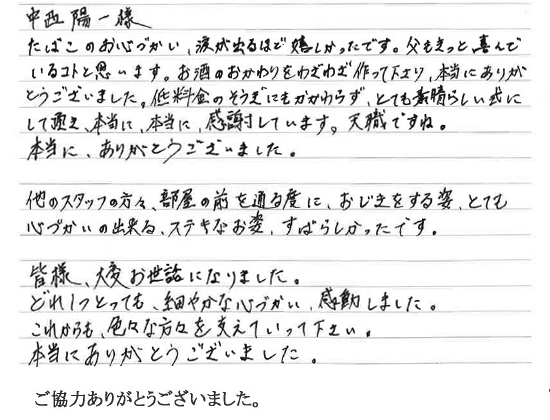 中西 陽一様
たばこのお心づかい、涙が出るほど嬉しかったです。父もきっと喜んで
いるコトと思います。お酒のおかわりをわざわざ作って下さり、本当にありが
とうございました。低料金のそうぎにもかかわらず、とても素晴らしい式に
して頂き、本当に、本当に、感謝しています。天職ですね。
本当に、ありがとうございました。
他のスタッフの方々、部屋の前を通る度に、おじぎをする姿、とても
心づかいの出来る、ステキなお姿、すばらしかったです。
皆様、大変お世話になりました。
どれ1つとっても、細やかな心づかい、感動しました。
これからも、色々な方々を支えていって下さい。
本当にありがとうございました。
ご協力ありがとうございました。